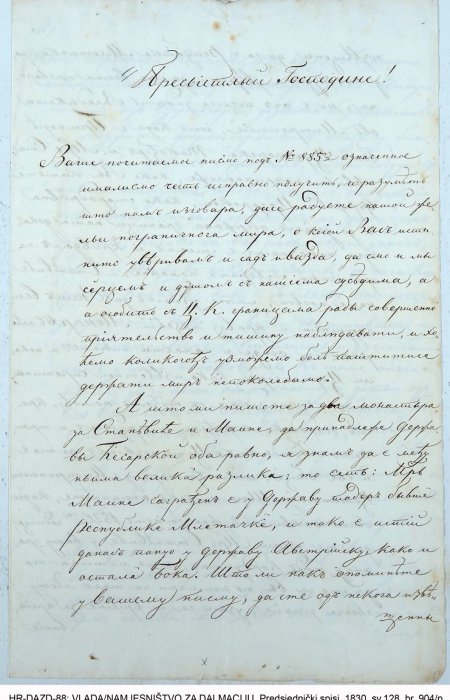 Пресвіетлый Господине!
Ваше почитаемое писмо подъ № 885 означенное
имали смо честь исправно получить, и разумѣть
што намъ изговара, да се радуете нашой же-
льи пограничнога мира, о коіой Васъ исти-
нито увѣривамъ и садъ и вазда, да смо и мы
сердцемъ и душомъ съ нашіема сусѣдима, а
а особито съ Ц. К. границама ради совершенно
пріятельство и тишину наблюдавати, и хо-
ћемо коликогодъ узможемо болѣ паштитисе
держати миръ непоколебимо.
А што ми пишете за два монастыра
за Станѣвиће и Маине, да принадлеже держа-
вы Ћесарской оба равно, я знамъ да є међу
ньима велика разлика; то есть: Мрь
Маине саграђенъ є у державу тадеръ бывше
Республике Млетачке, и тако є истій
данасъ пануо у державу Австрійску, како и
остала Бока. Што ли пакъ опоминѣте
у Вашему писму, да сте одъ некога извѣ-
щенны
HR-DAZD-88: VLADA/NAMJESNIŠTVO ZA DALMACIJU, Predsjednički spisi, 1830, sv.128, br. 904/p